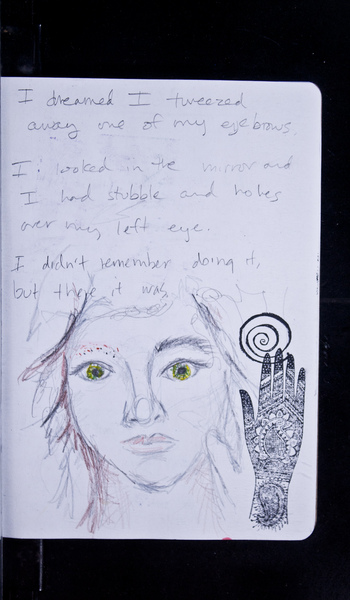 I dreamed I tweezed
away one of my eyebrows.
I looked in the mirror and
I had stubble and holes
over my left eye.
I didn't remember doing it,
but there it was.